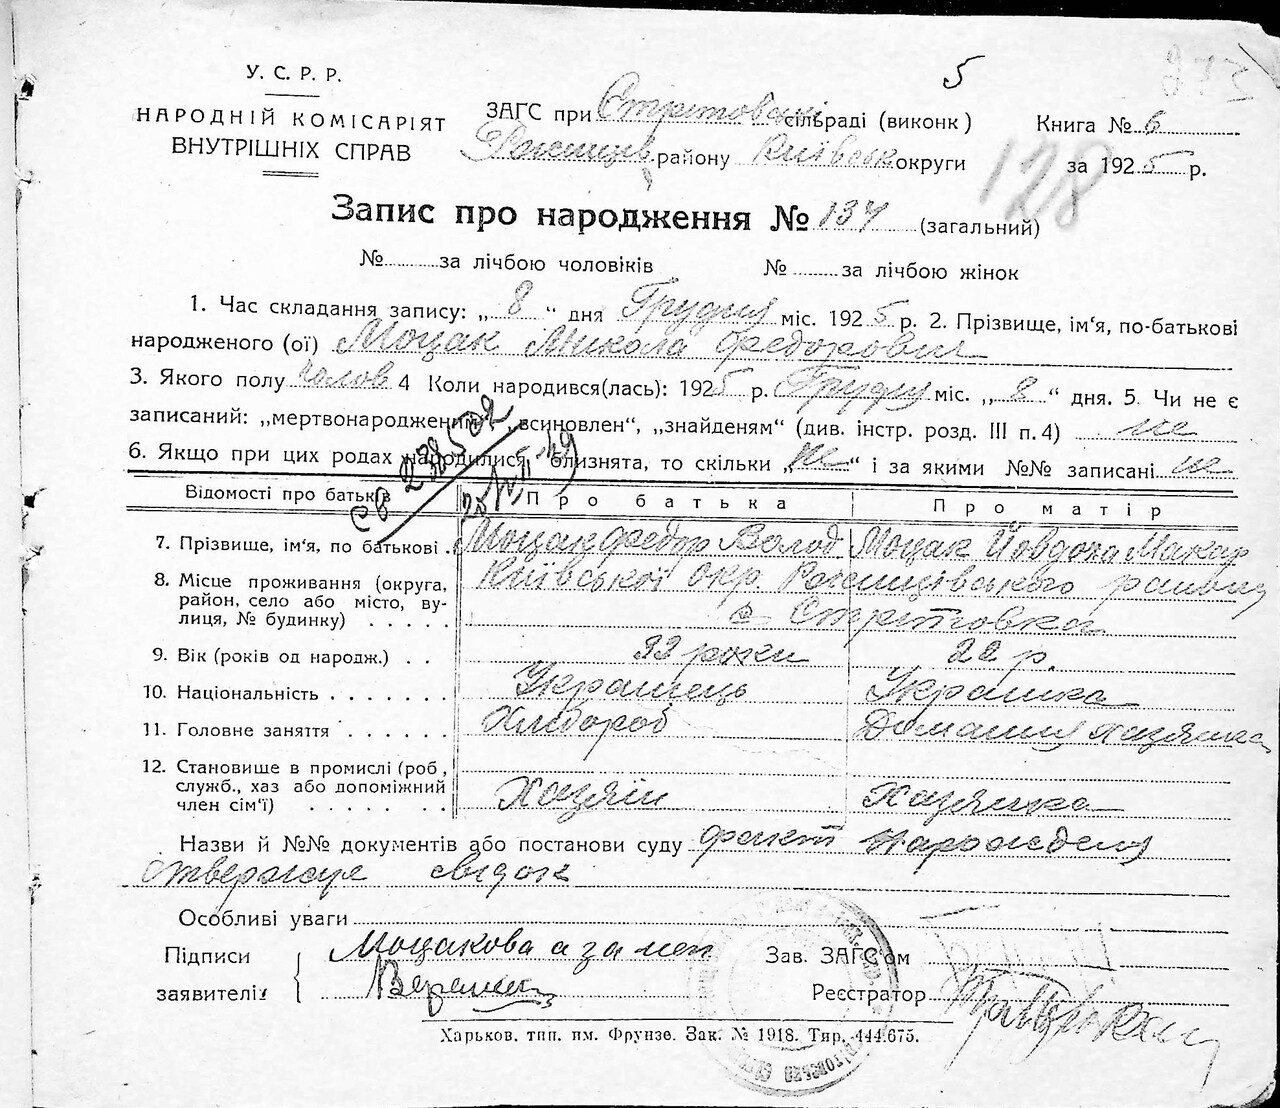 5
У. С. Р. Р.
НАРОДНІЙ КОМІСАРІЯТ
ВНУТРІШНІХ СПРАВ
ЗАГС при Стритовські сільраді (виконк)
району Київськ округи
Книга № 6
за 1925 р.
128
Запис про народження № 134 (загальний)
№ за лічбою чоловіків № за лічбою жінок
1. Час складання запису: „ 8 “ дня Грудня міс. 1925 р. 2. Прізвище, ім'я, по-батькові
народженого (ої) Моцак Микола Федорович
3. Якого полу чолов 4 Коли народився(лась): 1925 р. Грудня міс. „ 8 “ дня. 5. Чи не є
записаний: „мертвонародженим“ „всиновлен“, „знайденям“ (див. інстр. розд. III п. 4) не
6. Якщо при цих родах народилися близнята, то скільки „ не “ і за якими №№ записані не
Відомості про батьків Про батька Про матір
7. Прізвище, ім'я, по батькові . Моцак Федір Волод Моцак Йовдоха Макар
8. Місце проживання (округа, Київської окр. району
район, село або місто, ву-
лиця, № будинку) . . . . . с Стритовка
9. Вік (років од народж.) . . роки 22 р.
10. Національність . . . . . . . Українець Українка
11. Головне заняття . . . . . . Хлібороб Домашня хазяйка
12. Становище в промислі (роб,
служб., хаз або допоміжний
член сім'ї) . . . . . . . Хазяїн Хазяйка
Назви й №№ документів або постанови суду факт народження
стверджує
Особливі уваги
Підписи Моцакова а за неп Зав. ЗАГС'ом
заявителів Реєстратор
Харьков. тип. им. Фрунзе. Зак. № 1918. Тир. 444.675.